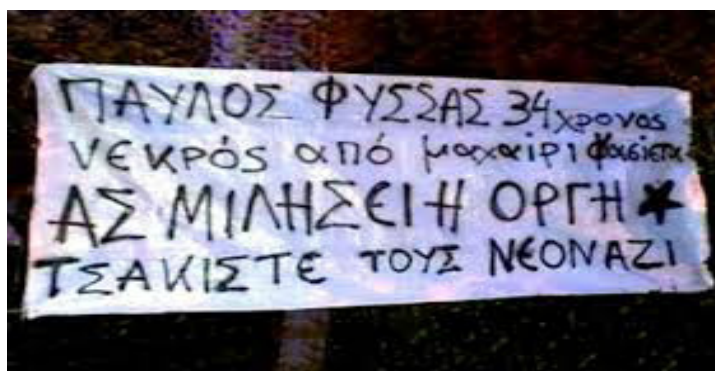 ΠΑΥΛΟΣ ΦΥΣΣΑΣ 34χρονος
νεκρός από μαχαίρι φασίστα
ΑΣ ΜΙΛΗΣΕΙ Η ΟΡΓΗ
ΤΣΑΚΙΣΤΕ ΤΟΥΣ ΝΕΟΝΑΖΙ